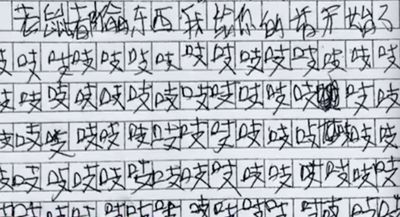 老鼠偷东西我给你开始了
吱吱吱吱吱吱吱吱吱吱吱吱吱吱
吱吱吱吱吱吱吱吱吱吱吱吱吱
吱吱吱吱吱吱吱吱吱吱吱吱吱
吱吱吱吱吱吱吱吱吱吱吱吱吱吱